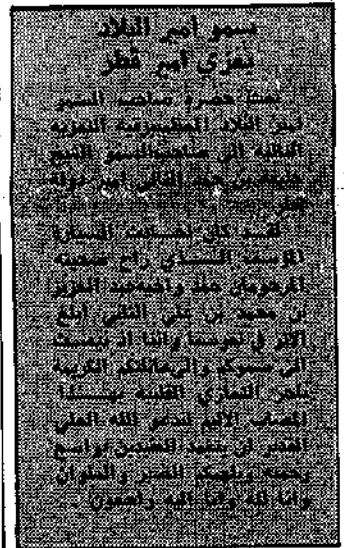 سمو أمير البلاد
يعزي أمير قطر
بعث حضرة صاحب السمو
أمير البلاد المعظم برقية التعزية
التالية إلى صاحب السمو الشيخ
خليفة بن حمد الثاني أمير دولة
قطر
لقد كان لحادث السيارة
المؤسف الذي راح ضحيته
المرحومان حمد وأخيه عبد العزيز
بن محمد بن علي الثاني أبلغ
الأثر في نفوسنا وإننا إذ نبعث
إلى سموكم وإلى عائلتكم الكريمة
بأحر التعازي القلبية بهذا
المصاب الأليم لندعو الله العلي
القدير أن يتغمد الفقيدين بواسع
رحمته ويلهمكم الصبر والسلوان
وإنا لله وإنا إليه راجعون .